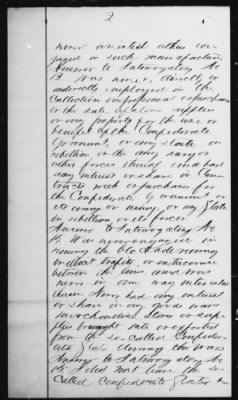 2
never assisted others en-
gaged in such manufacture
Answer to Interrogatory No
13 Was never, directly or
indirectly employed in the
Collection impressment or purchase
or the sale of stores supplies
or any property for the use or
benefit of the Confederate
Government, or any state in
rebellion or the army navy or
other forces thereof and had
any interest or share in Con
tracts with or purchases for
the Confederate Government or
its army or navy, or any State
in rebellion or its forces
Answer to Interrogatory No
14 Was never engaged in
running the blockade
or illicit traffic or intercourse
between the lines, and was
never in any way interested
therein Never had any interest
or share in any goods wares
merchandise Stores or supp
plies brought into or exported
from the so-called Confeder
ate States during the war
Answer to Interrogatory No
15 I did not leave the so-
Called Confederate States